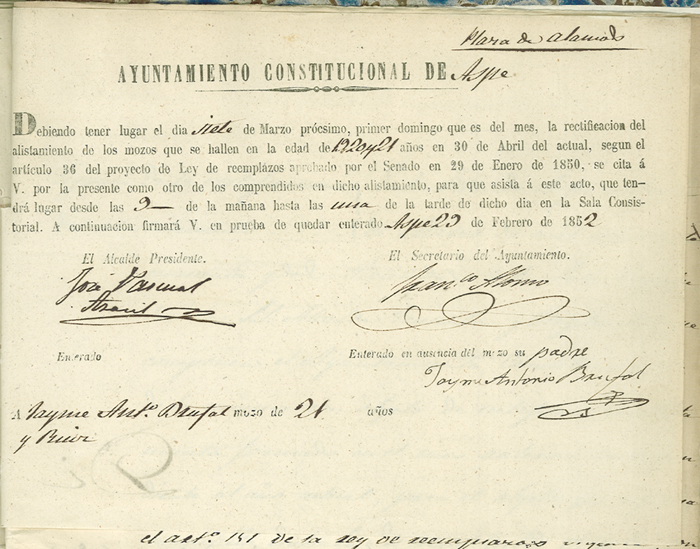 Plaza de Alameda
AYUNTAMIENTO CONSTITUCIONAL DE Aspe
Debiendo tener lugar el dia siete de Marzo prócsimo, primer domingo que es del mes, la rectificacion del
alistamiento de los mozos que se hallen en la edad de 19 20 y 21 años en 30 de Abril del actual, segun el
artículo 36 del proyecto de Ley de reemplazos aprobado por el Senado en 29 de Enero de 1850, se cita á
V. por la presente como otro de los comprendidos en dicho alistamiento, para que asista á este acto, que ten-
drá lugar desde las 9 de la mañana hasta las una de la tarde de dicho dia en la Sala Consis-
torial. A continuacion firmará V. en prueba de quedar enterado Aspe 29 de Febrero de 1852
El Alcalde Presidente.
El Secretario del Ayuntamiento.
José Pascual
Franco Alonso
Enterado
Enterado en ausencia del mozo su padre
Jayme António Brufal
A Jayme Anto. Brufal mozo de 21 años
y
el arto. 131 de la ley de reemplazos